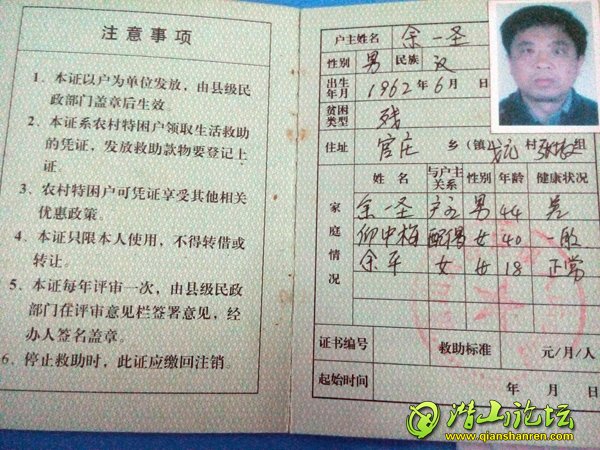 注意事项
1．本证以户为单位发放，由县级民
政部门盖章后生效。
2．本证系农村特困户领取生活救助
的凭证，发放救助款物要登记上
证。
3．农村特困户可凭证享受其他相关
优惠政策。
4．本证只限本人使用，不得转借或
转让。
5．本证每年评审一次，由县级民政
部门在评审意见栏签署意见，经
办人签名盖章。
6．停止救助时，此证应缴回注销。
户主姓名 余一圣
性别 男 民族 汉
出生年月 1962年6月 日
贫困类型 残
住址 官庄 乡（镇） 村 组
家庭情况
姓名 与户主关系 性别 年龄 健康状况
余一圣 户主 男 44 差
仰中梅 配偶 女 40 一般
余平 女 女 18 正常
证书编号 救助标准 元/月/人
起始时间 年 月 日
潜山论坛
www.qianshanren.com